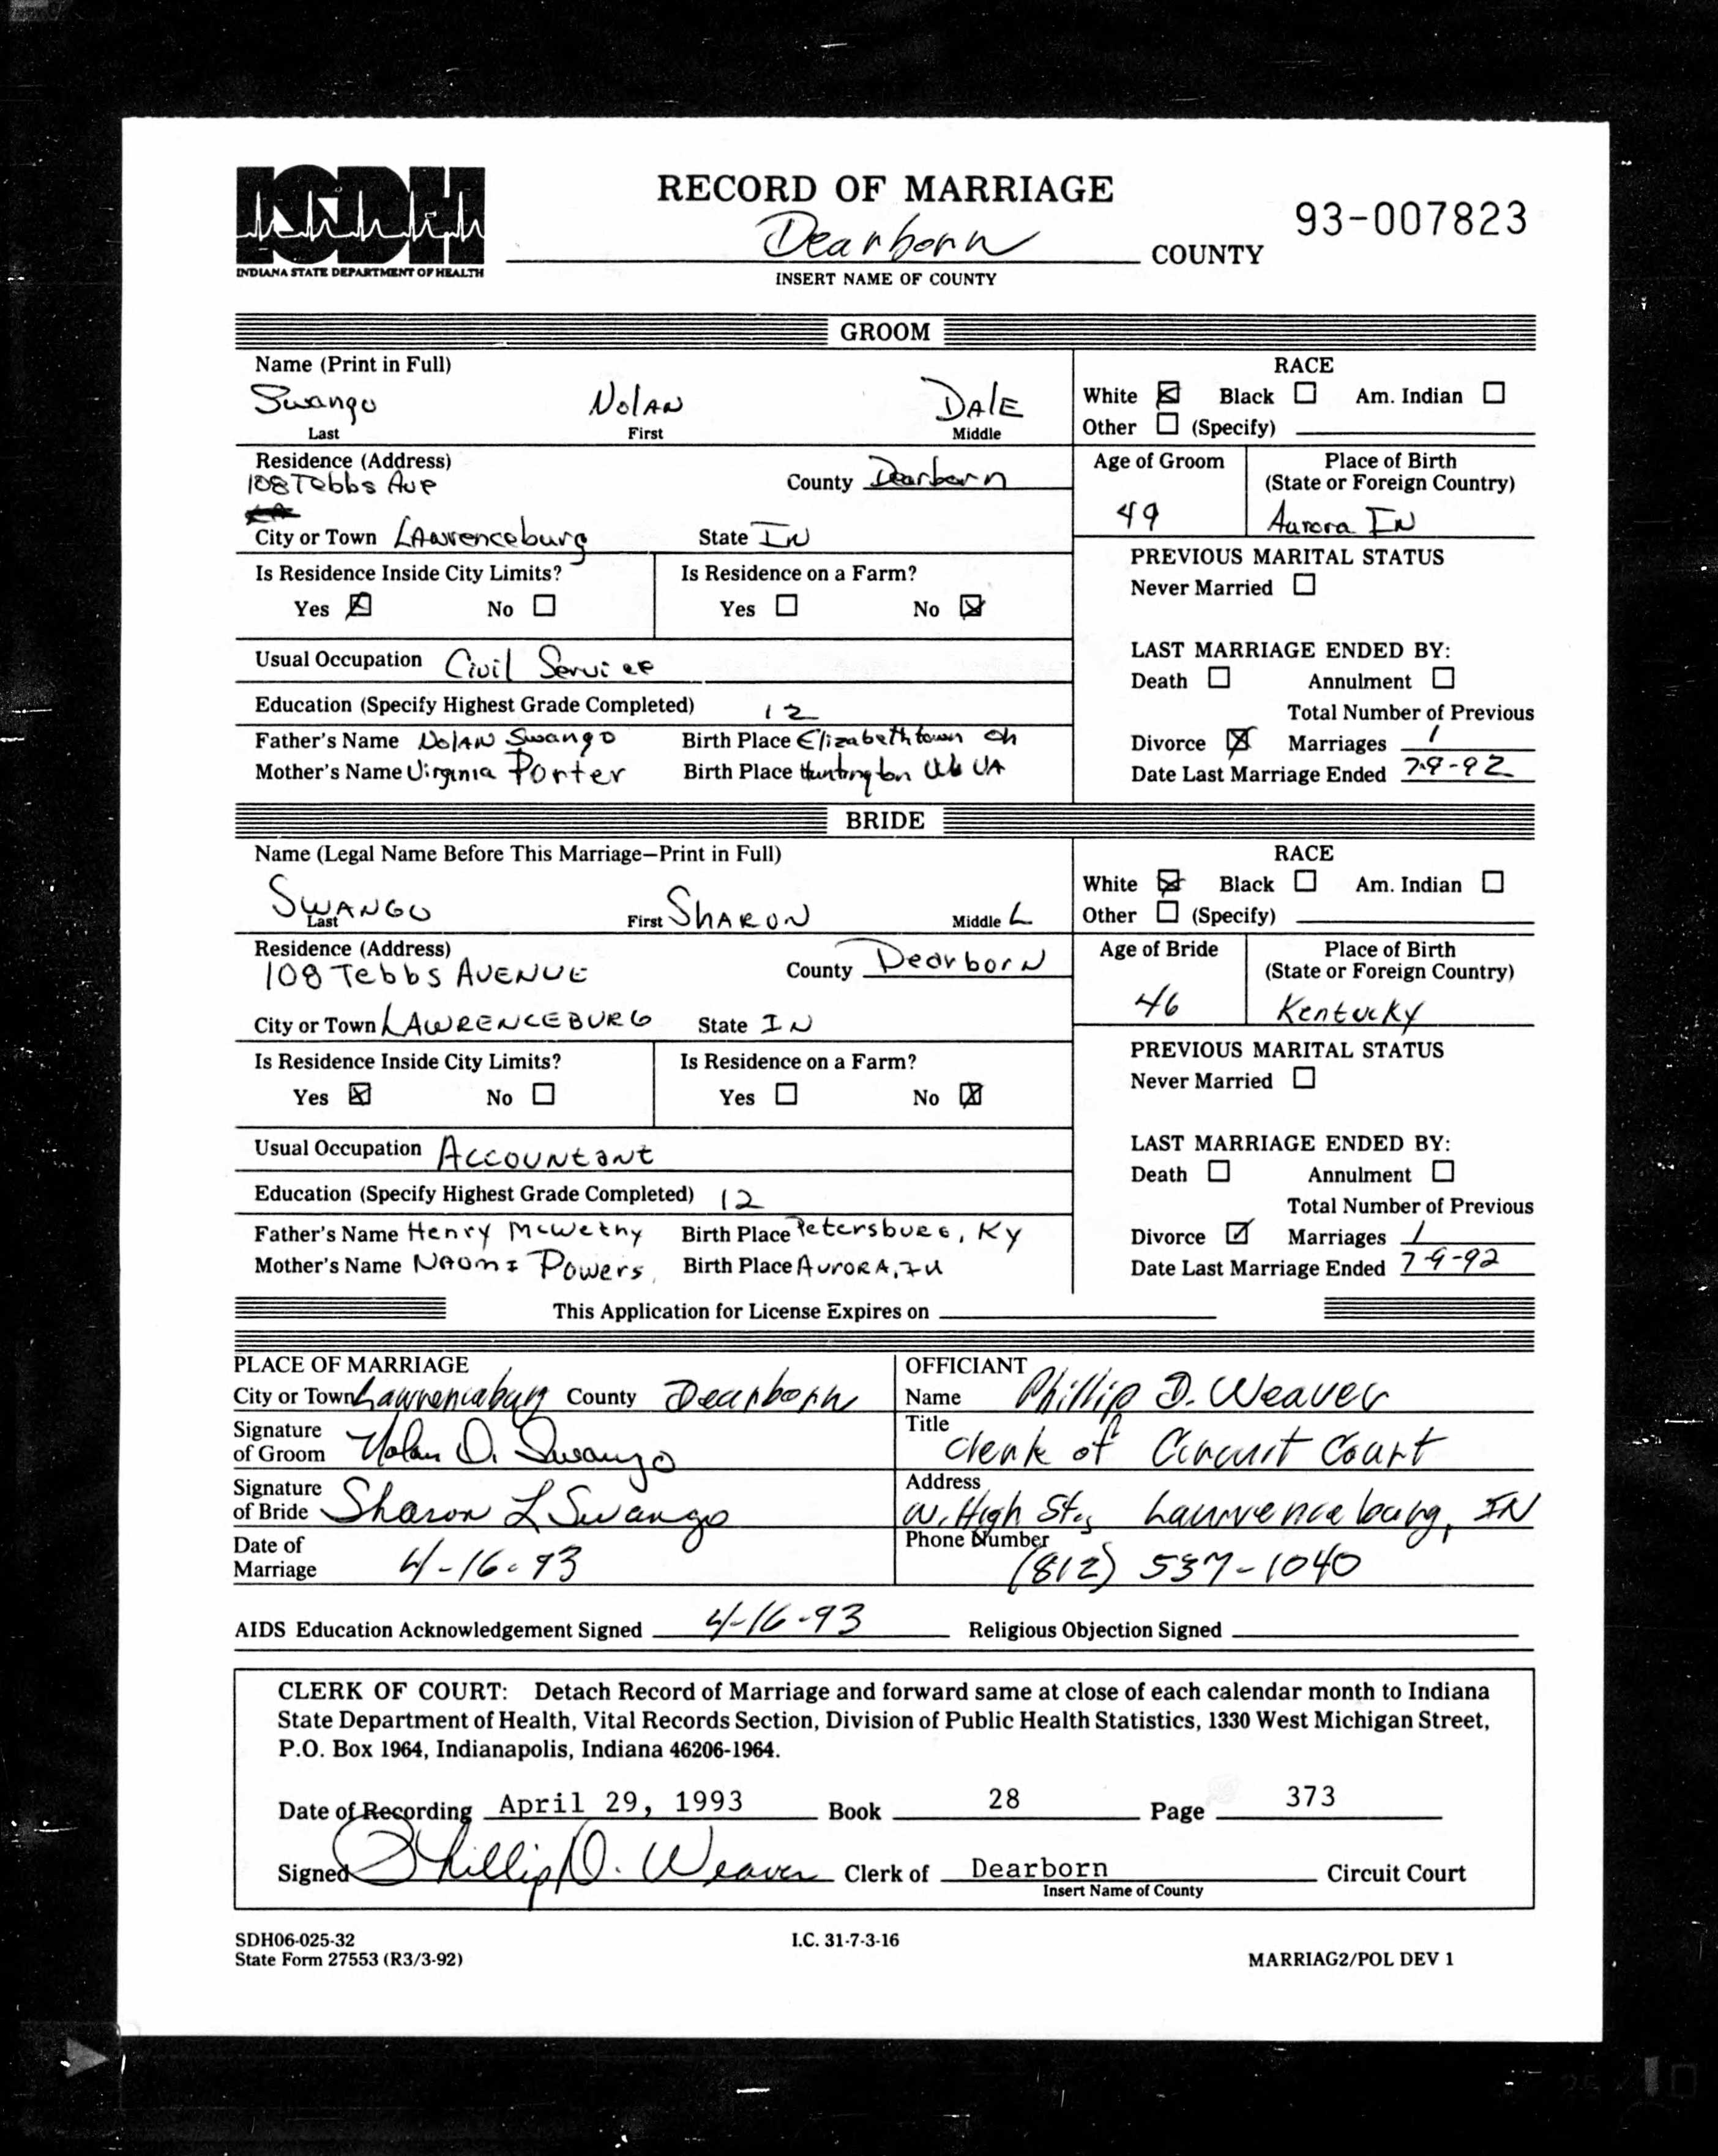 ISDH
INDIANA STATE DEPARTMENT OF HEALTH
RECORD OF MARRIAGE
93-007823
Dearborn COUNTY
INSERT NAME OF COUNTY
GROOM
Name (Print in Full)
Swango Nolan Dale
Last First Middle
RACE
White ☒ Black ☐ Am. Indian ☐
Other ☐ (Specify)
Residence (Address)
108 Tebbs Ave
County Dearborn
City or Town Lawrenceburg State IN
Age of Groom
49
Place of Birth
(State or Foreign Country)
Aurora IN
Is Residence Inside City Limits?
Yes ☒ No ☐
Is Residence on a Farm?
Yes ☐ No ☒
PREVIOUS MARITAL STATUS
Never Married ☐
Usual Occupation Civil Service
Education (Specify Highest Grade Completed) 12
Father's Name Nolan Swango Birth Place Elizabethtown Oh
Mother's Name Virginia Porter Birth Place Huntington W VA
LAST MARRIAGE ENDED BY:
Death ☐ Annulment ☐
Total Number of Previous
Divorce ☒ Marriages 1
Date Last Marriage Ended 7-9-92
BRIDE
Name (Legal Name Before This Marriage—Print in Full)
SWANGO SHARON L
Last First Middle
RACE
White ☒ Black ☐ Am. Indian ☐
Other ☐ (Specify)
Residence (Address)
108 Tebbs AVENUE
County Dearborn
City or Town LAWRENCEBURG State IN
Age of Bride
46
Place of Birth
(State or Foreign Country)
Kentucky
Is Residence Inside City Limits?
Yes ☒ No ☐
Is Residence on a Farm?
Yes ☐ No ☒
PREVIOUS MARITAL STATUS
Never Married ☐
Usual Occupation Accountant
Education (Specify Highest Grade Completed) 12
Father's Name Henry McWethy Birth Place Petersburg, Ky
Mother's Name Naomi Powers Birth Place AURORA, IN
LAST MARRIAGE ENDED BY:
Death ☐ Annulment ☐
Total Number of Previous
Divorce ☑ Marriages 1
Date Last Marriage Ended 7-9-92
This Application for License Expires on
PLACE OF MARRIAGE
City or Town Lawrenceburg County Dearborn
Signature
of Groom Nolan D. Swango
Signature
of Bride Sharon L Swango
Date of
Marriage 4-16-93
OFFICIANT
Name Phillip D. Weaver
Title Clerk of Circuit Court
Address
W. High St., Lawrenceburg, IN
Phone Number
(812) 537-1040
AIDS Education Acknowledgement Signed 4-16-93 Religious Objection Signed
CLERK OF COURT: Detach Record of Marriage and forward same at close of each calendar month to Indiana
State Department of Health, Vital Records Section, Division of Public Health Statistics, 1330 West Michigan Street,
P.O. Box 1964, Indianapolis, Indiana 46206-1964.
Date of Recording April 29, 1993 Book 28 Page 373
Signed Phillip D. Weaver Clerk of Dearborn Circuit Court
Insert Name of County
SDH06-025-32
State Form 27553 (R3/3-92)
I.C. 31-7-3-16
MARRIAG2/POL DEV 1